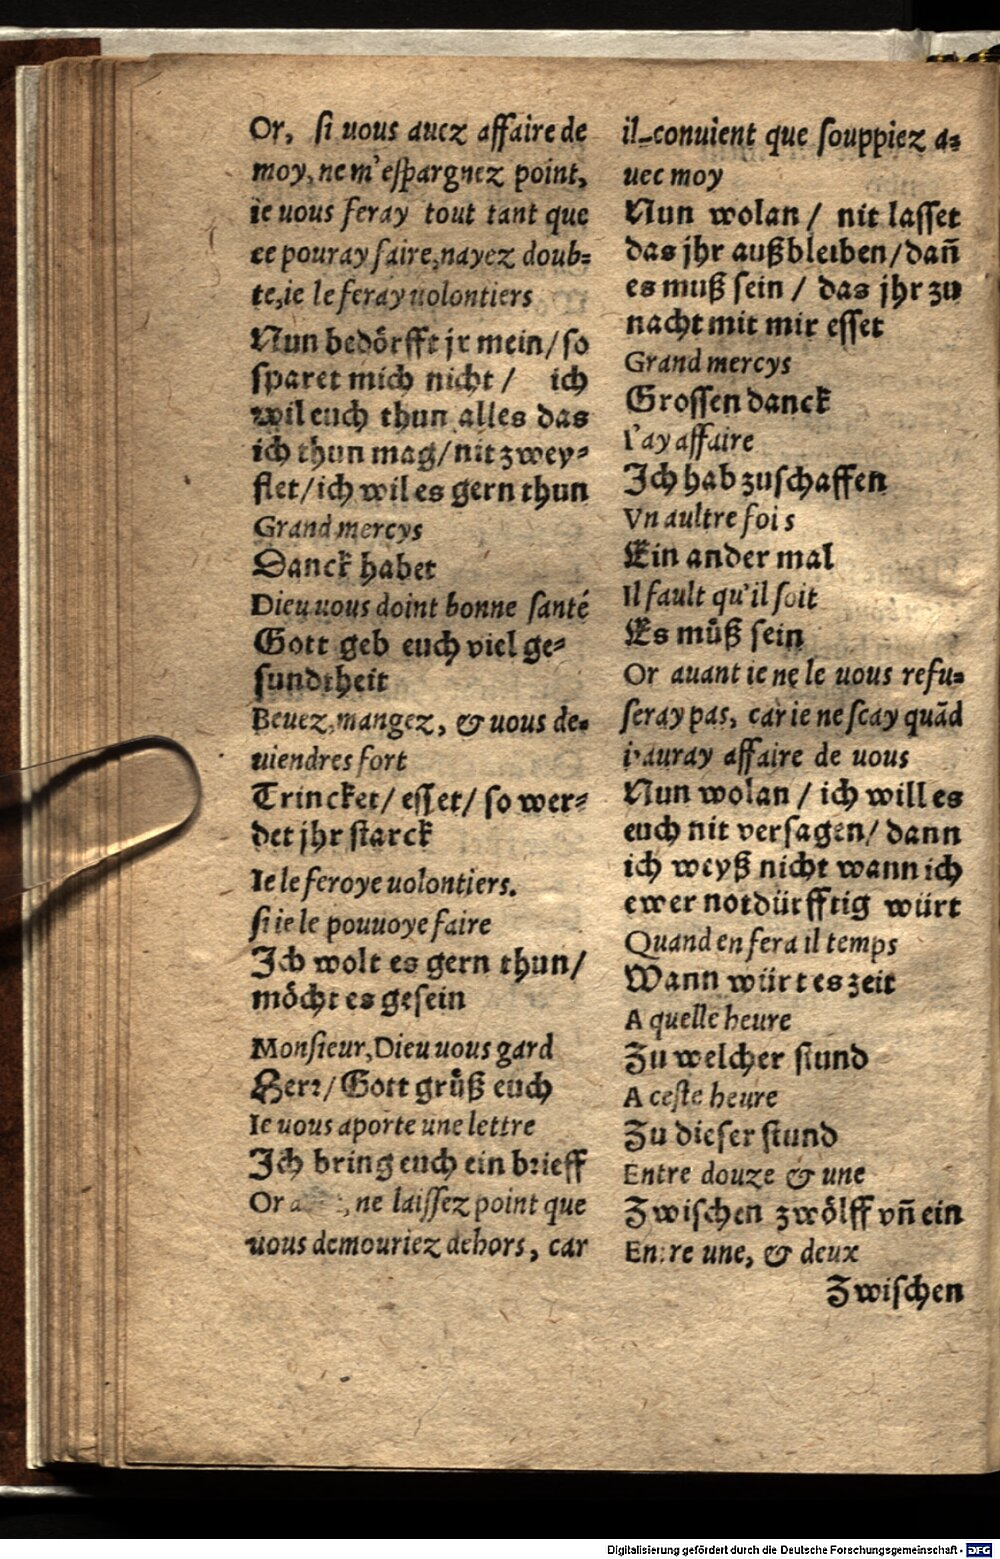 Or, ſi uous auez affaire de
moy, ne m'eſpargnez point,
ie uous feray tout tant que
ee pouray faire, nayez doub⸗
te, ie le feray uolontiers
Nun bedörfft jr mein/ ſo
ſparet mich nicht / ich
wil euch thun alles das
ich thun mag/ nit zwey⸗
flet/ ich wil es gern thun
Grand mercys
Danck habet
Dieu uous doint bonne ſanté
Gott geb euch viel ge⸗
ſundtheit
Beuez, mangez, & uous de⸗
uiendres fort
Trincket/ eſſet/ ſo wer⸗
det jhr ſtarck
Ie le feroye uolontiers.
ſi ie le pouuoye faire
Ich wolt es gern thun/
möcht es geſein
Monſieur, Dieu uous gard
Herꝛ/ Gott grůß euch
Ie uous aporte une lettre
Ich bring euch ein bꝛieff
Or , ne laiſſez point que
uous demouriez dehors, car
il conuient que ſouppiez a⸗
uec moy
Nun wolan / nit laſſet
das jhr außbleiben/ dañ
es muß ſein / das jhr zu
nacht mit mir eſſet
Grand mercys
Groſſen danck
I'ay affaire
Ich hab zuſchaffen
Vn aultre fois
Ein ander mal
Il fault qu'il ſoit
Es můß ſein
Or auant ie ne le uous refu⸗
ſeray pas, car ie ne ſcay quãd
i'auray affaire de uous
Nun wolan / ich will es
euch nit verſagen/ dann
ich weyß nicht wann ich
ewer notdürfftig würt
Quand en fera il temps
Wann würt es zeit
A quelle heure
Zu welcher ſtund
A ceſte heure
Zu dieſer ſtund
Entre douze & une
Zwiſchen zwölff vñ ein
Entre une, & deux
Zwiſchen
Digitalisierung gefördert durch die Deutsche Forschungsgemeinschaft - DFG